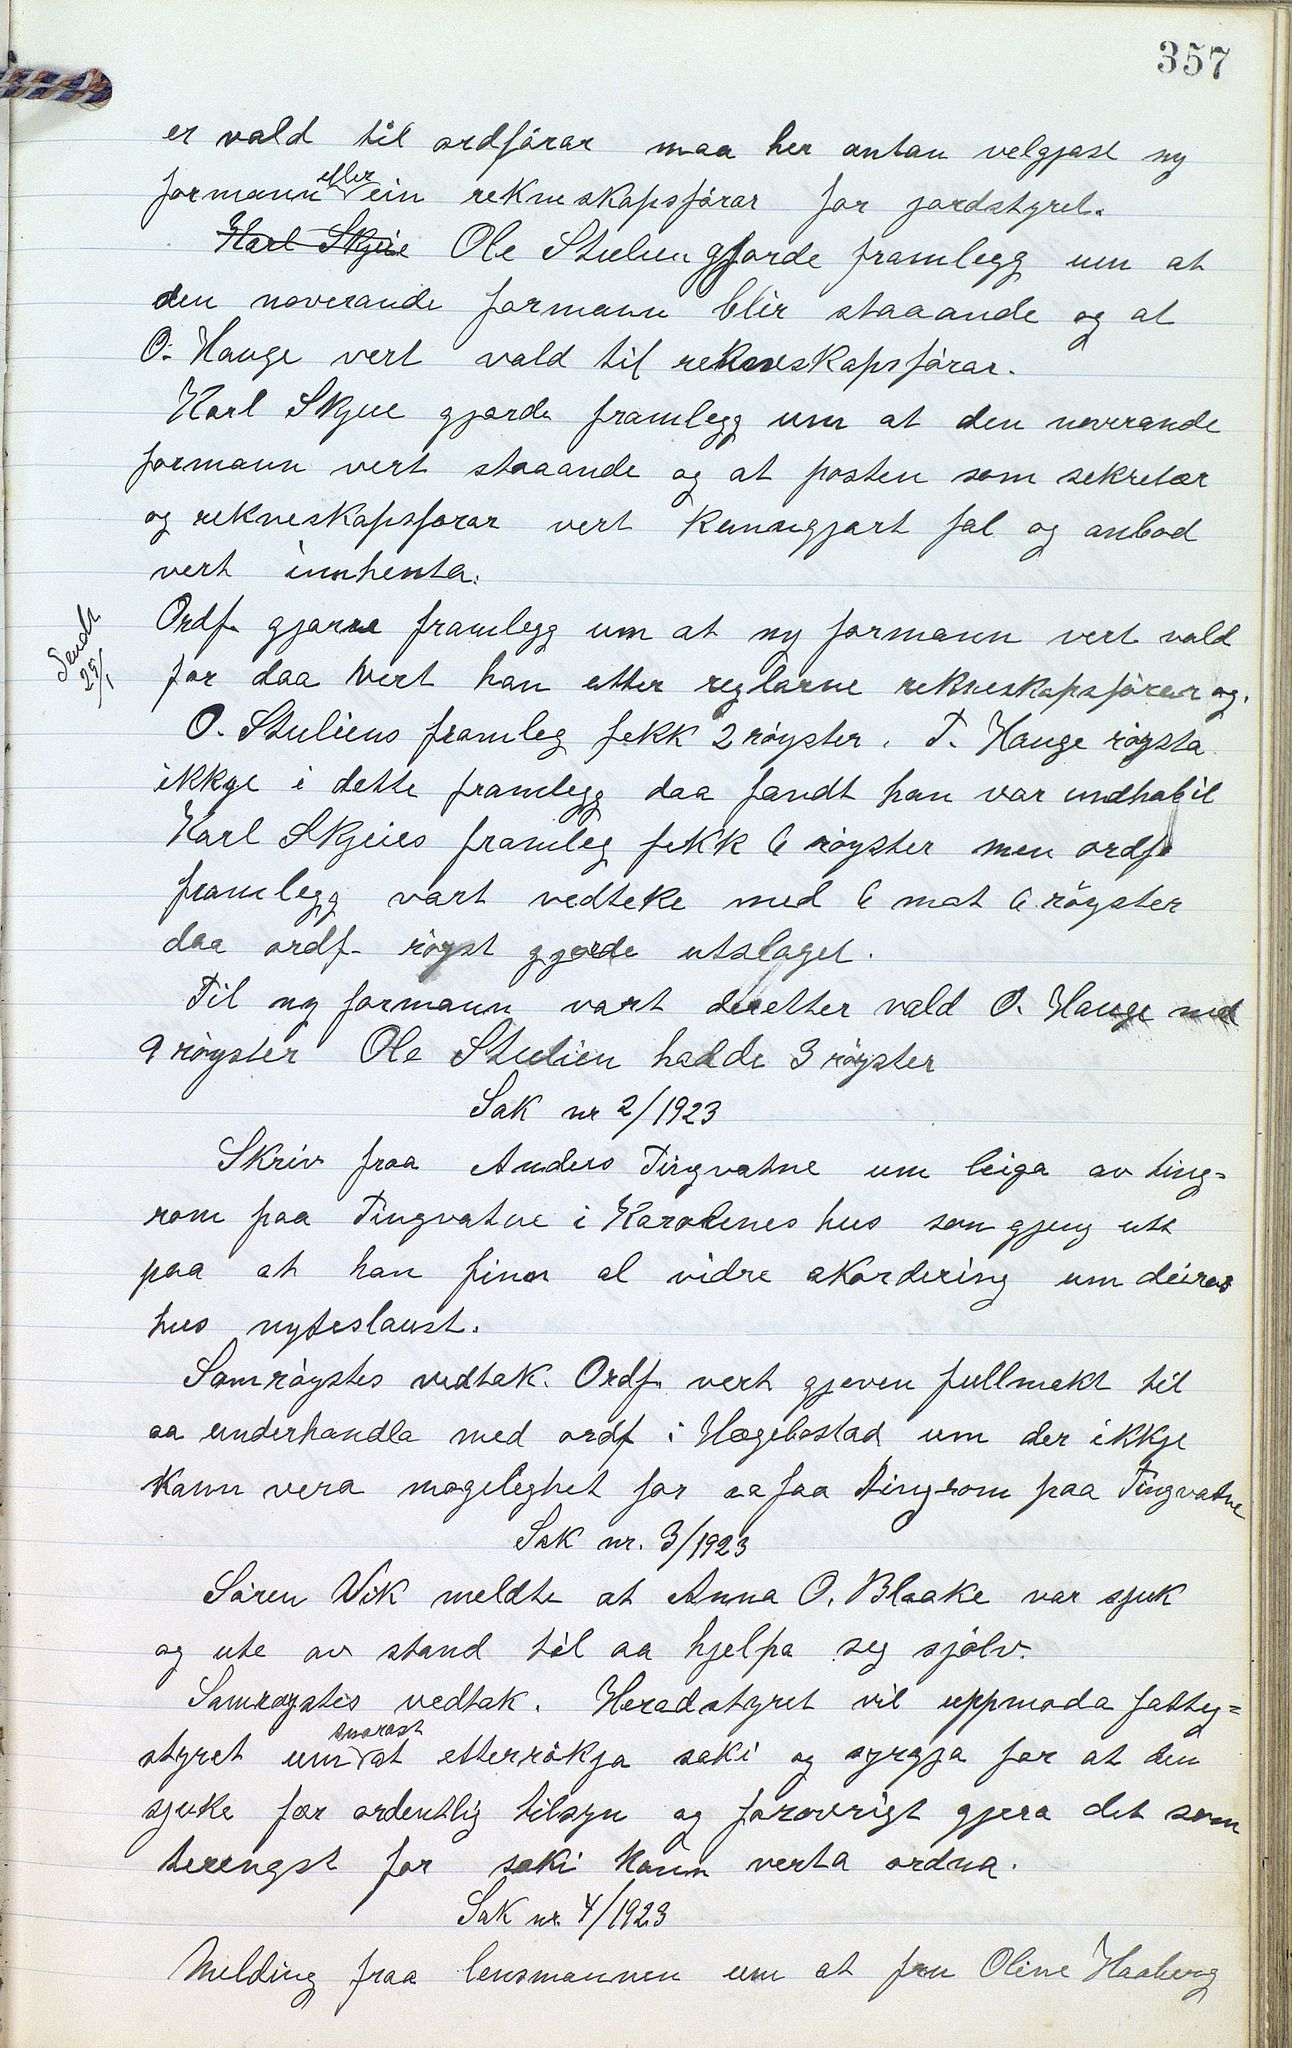 357
er vald til ordförar maa her antan velgjast ny
formann eller ein rekneskapsförar for jordstyret.
Karl Skjeie Ole Stulien gjorde framlegg um at
den noverande formann blir staaande og at
O. Hauge vert vald til rekneskapsförar.
Karl Skjeie gjorde framlegg um at den noverande
formann vert staaande og at posten som sekretær
og rekneskapsförar vert kunngjort fal og anbod
vert innhenta.
Sendt
29/1
Ordf. gjorde framlegg um at ny formann vert vald
for daa vert han etter reglarne rekneskapsförar og.
O. Stuliens framleg fekk 2 röyster. T. Hauge röysta
ikkje i dette framlegg daa fandt han var indhabil
Karl Skjeies framleg fekk 6 röyster men ordf.
framlegg vart vedteke med 6 mot 6 röyster
daa ordf. röyst gjorde utslaget.
Til ny formann vart deretter vald O. Hauge med
9 röyster Ole Stulien hadde 3 röyster
Sak nr 2/1923
Skriv fraa Anders Tingvatne um leiga av ting-
rom paa Tingvatne i Karolenes hus som gjeng utt
paa at han finn al vidre akordering um deires
hus nyteslaust.
Samröystes vedtak. Ordf. vert gjeven fullmakt til
aa underhandla med ordf i Hægebostad um der ikkje
kann vera mogelighet for aa faa tingrom paa Tingvatne
Sak nr. 3/1923
Sören Vik meldte at Anna O. Blaake var sjuk
og ute av stand til aa hjelpa seg sjölv.
Samröystes vedtak. Heradstyret vil uppmoda fattig-
styret um snarast at etterrökja saki og syrgja for at den
sjuke fær ordentlig tilsyn og forövrigt gjera det som
terengst for saki kann verta ordna.
Sak nr. 4/1923
Melding fraa lensmannen um at fru Oline Haaberg